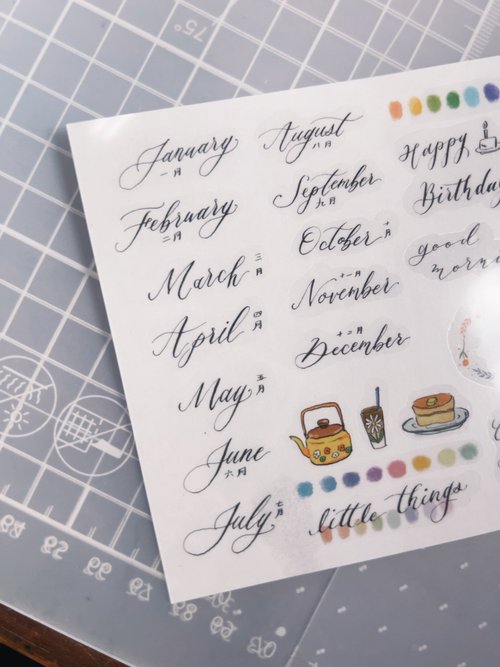 January
一月
February
二月
March
三月
April
四月
May
五月
June
六月
July
七月
August
八月
September
九月
October
十月
November
十一月
December
十二月
little things
Happy
Birthday
good
75°